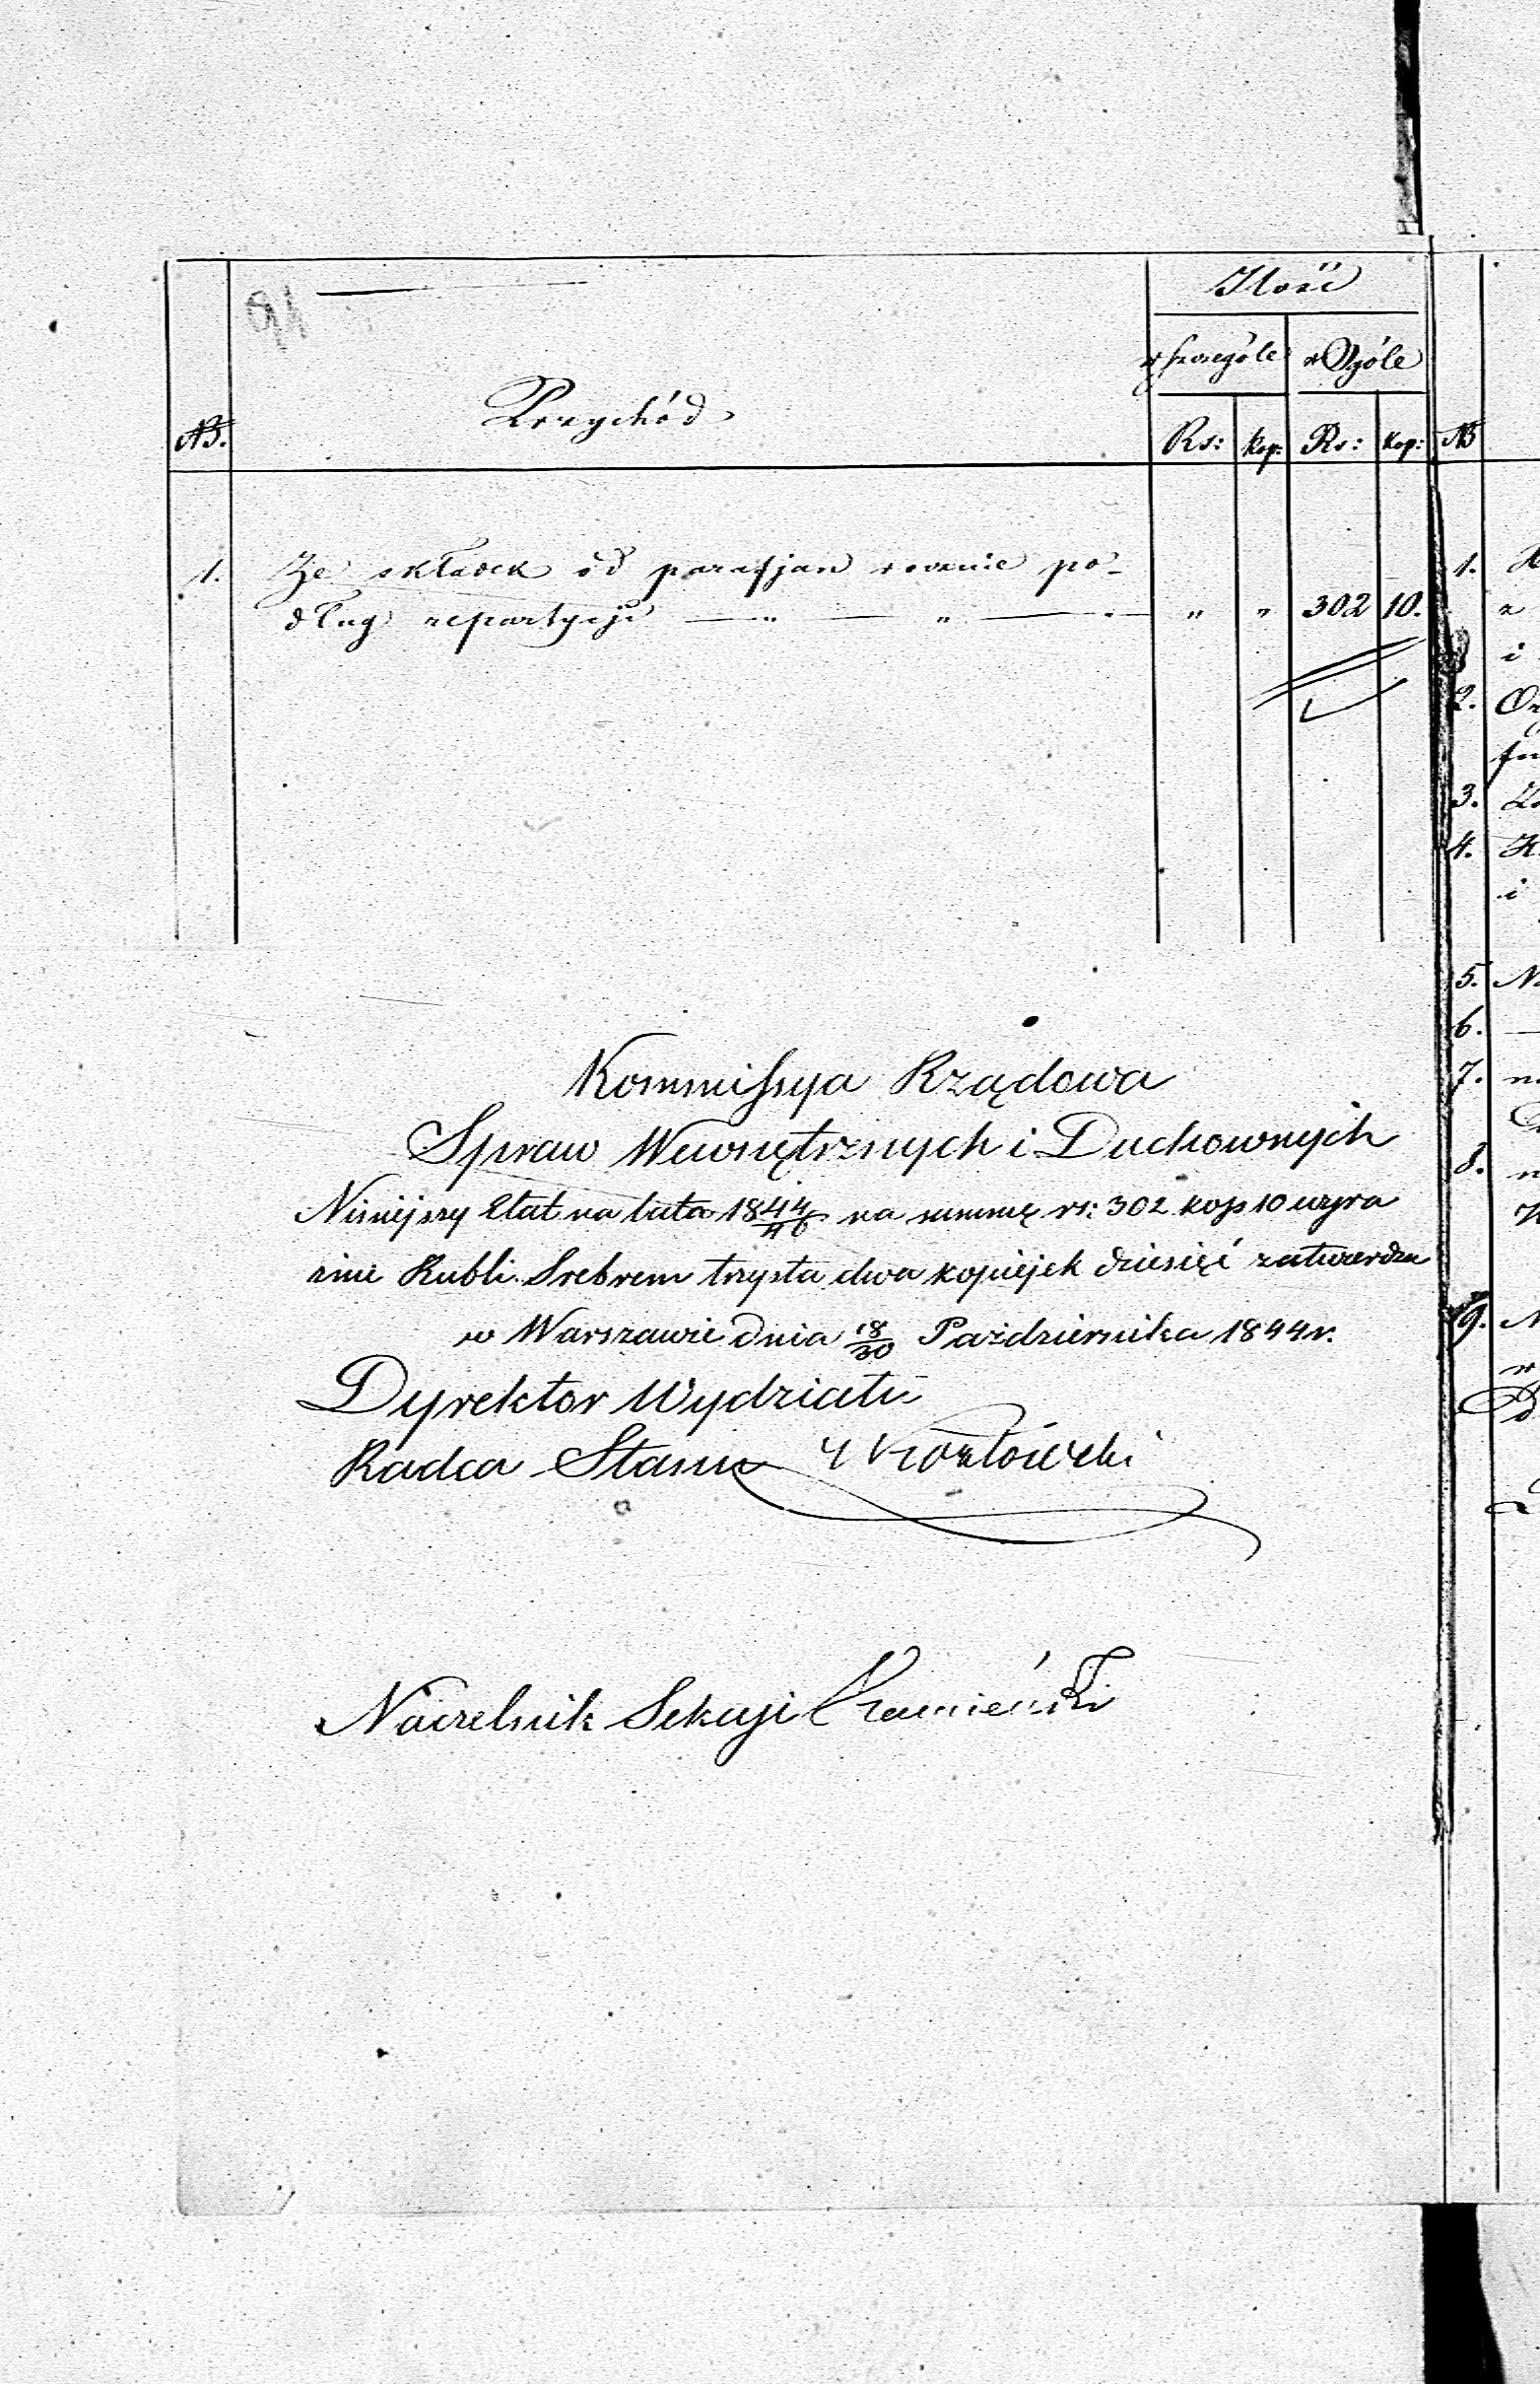 Ilość
w szczególe w Ogóle
NB. Przychód Rs: kop: Rs: kop: NB
1. Ze składek od parafjan rocznie po-
dług repartycji — „ — „ — „ „ 302 10.
1.
i
2.
3.
4.
i
5.
6.
7.
8.
9.
Kommissya Rządowa
Spraw Wewnętrznych i Duchownych
Niniejszy Etat na lata 1844/46 na summę rs: 302 kop 10 wyra
źnie Rubli Srebrem trzysta dwa kopiejek dziesięć zatwierdza
w Warszawie dnia 18/30 Października 1844 r.
Dyrektor Wydziału
Radca Stanu Kozłowski
Naczelnik Sekcyi Kamieński